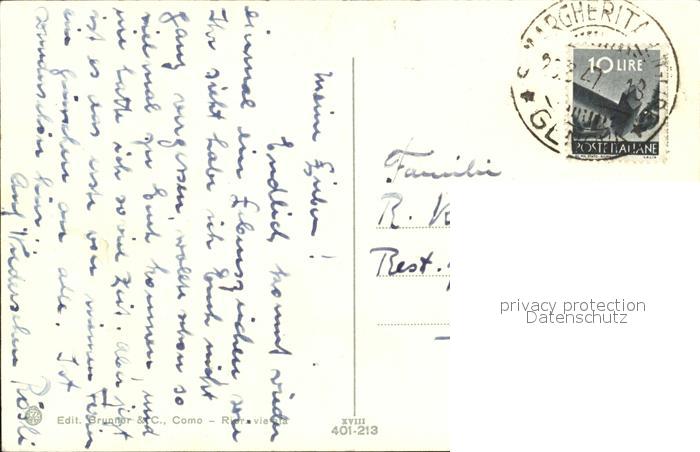 Meine Lieben!
Endlich kommt wieder
einmal ein Lebenszeichen von
Ihr seht hab ich Euch nicht
ganz vergessen, wollte schon so
viel mal zu Euch kommen, und
nie hatte ich so viel Zeit. Aber jetzt
ist es das erste von meinen Ferien
ein Grüsschen an alle. Ist
wunderschön hier.
Auf Wiedersehen Rösli
Familie
R.
Rest.
S. MARGHERITA LIGURE
GENOVA
10 LIRE
POSTE ITALIANE
Edit. Brunner & C., Como - Ripr. vietata
XVIII
401-213
privacy protection
Datenschutz